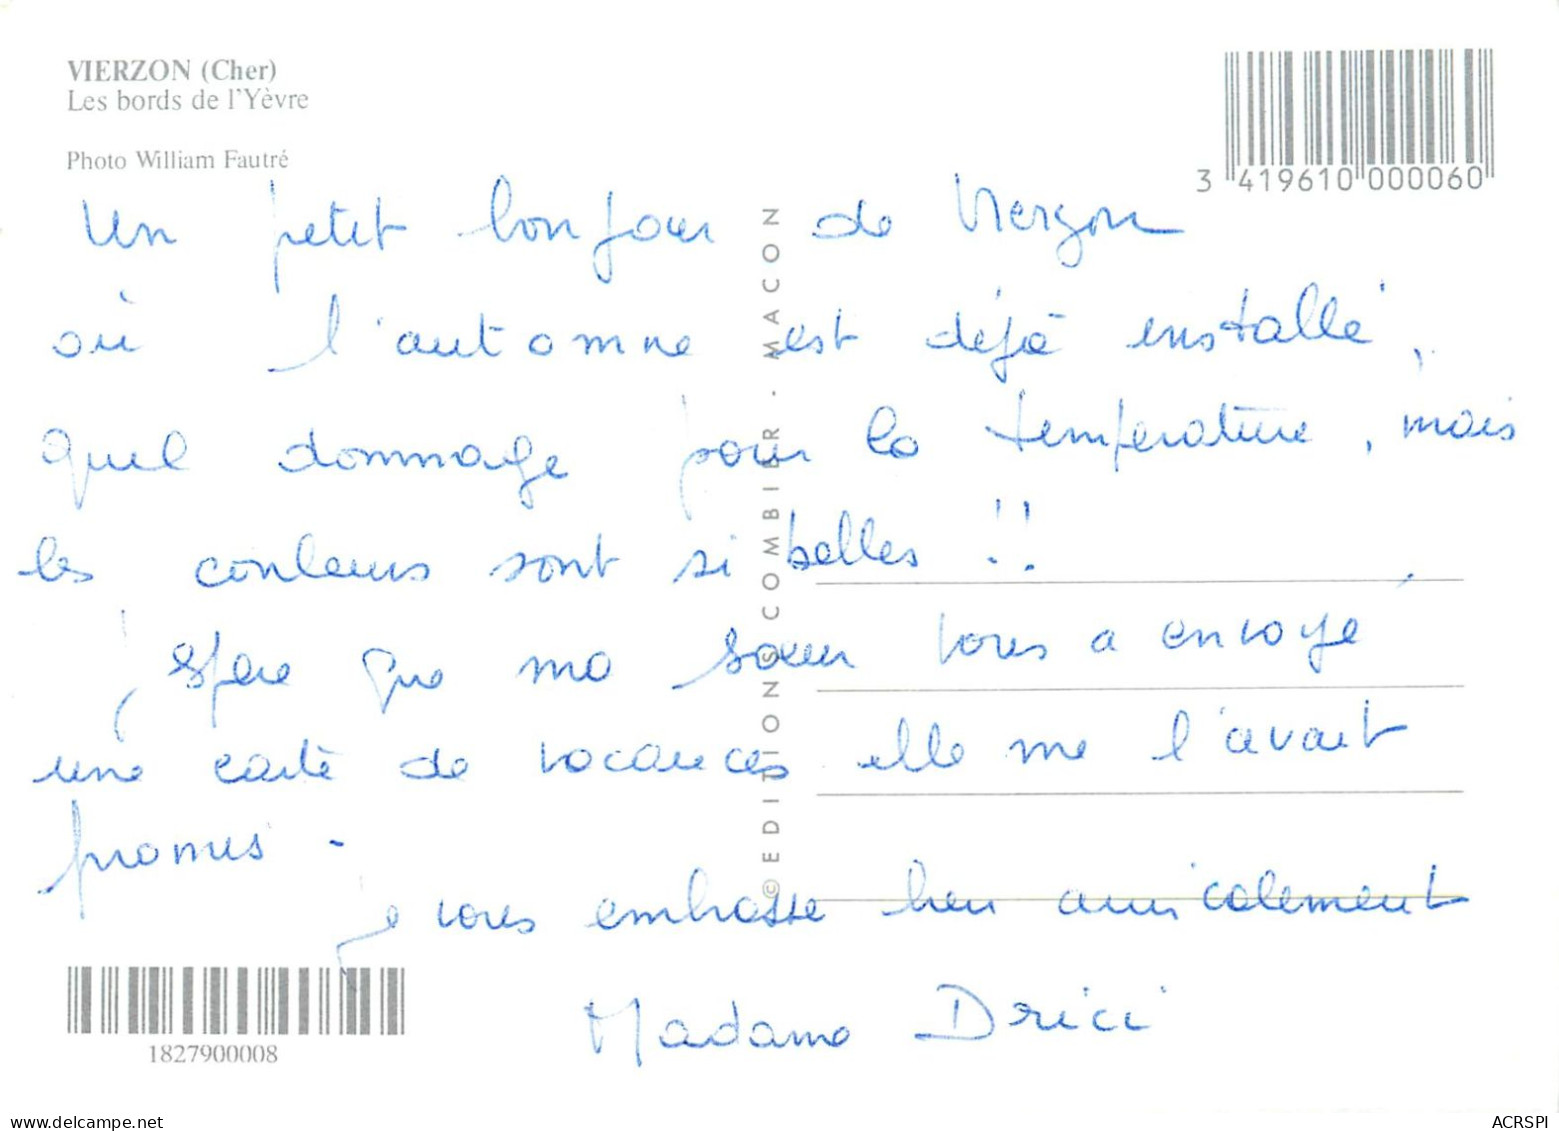 VIERZON (Cher)
Les bords de l'Yèvre
Photo William Fautré
3 419610 000060
Un petit bonjour de Vierzon
où l'automne est déjà installé,
quel dommage pour la température, mais
les couleurs sont si belles !!
J'espère que ma sœur vous a envoyé
une carte de vacances elle me l'avait
promis -
Je vous embrasse bien amicalement
Madame Drici
© EDITIONS COMBIER - MACON
1827900008
ACRSPI